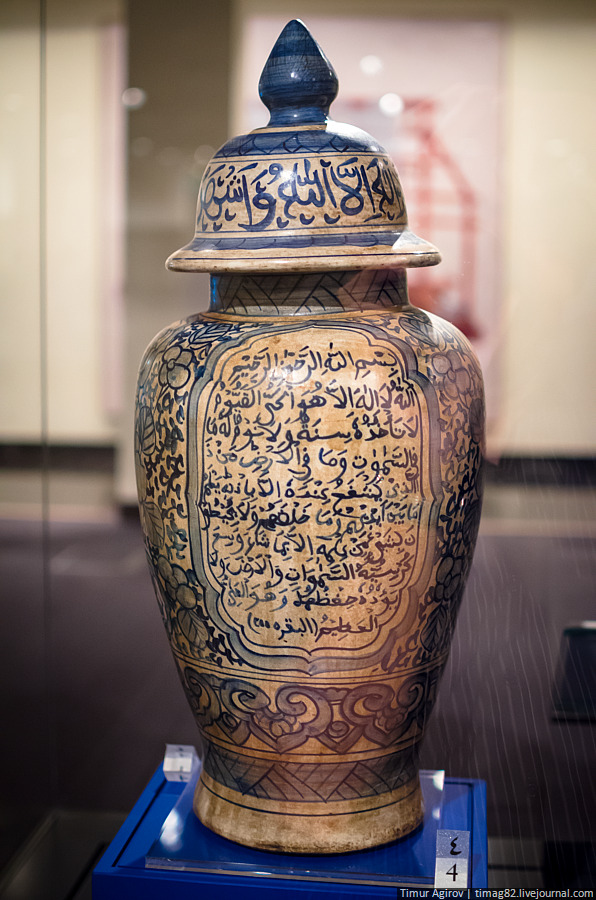 اله الا الله واشهد
بسم الله الرحمن الرحيم
الله لا اله الا هو الحي القيوم
لا تاخذه سنة ولا نوم له ما
في السموت وما في الارض من ذا
الذي يشفع عنده الا باذنه يعلم
ما بين ايديهم وما خلفهم ولا يحيطو
ن بشيء من علمه الا بما شاء وسع
كرسيه السموات والارض ولا
يوده حفظهما وهو العلي
العظيم (البقره ٢٥٥)
٤
4
Timur Agirov | timag82.livejournal.com